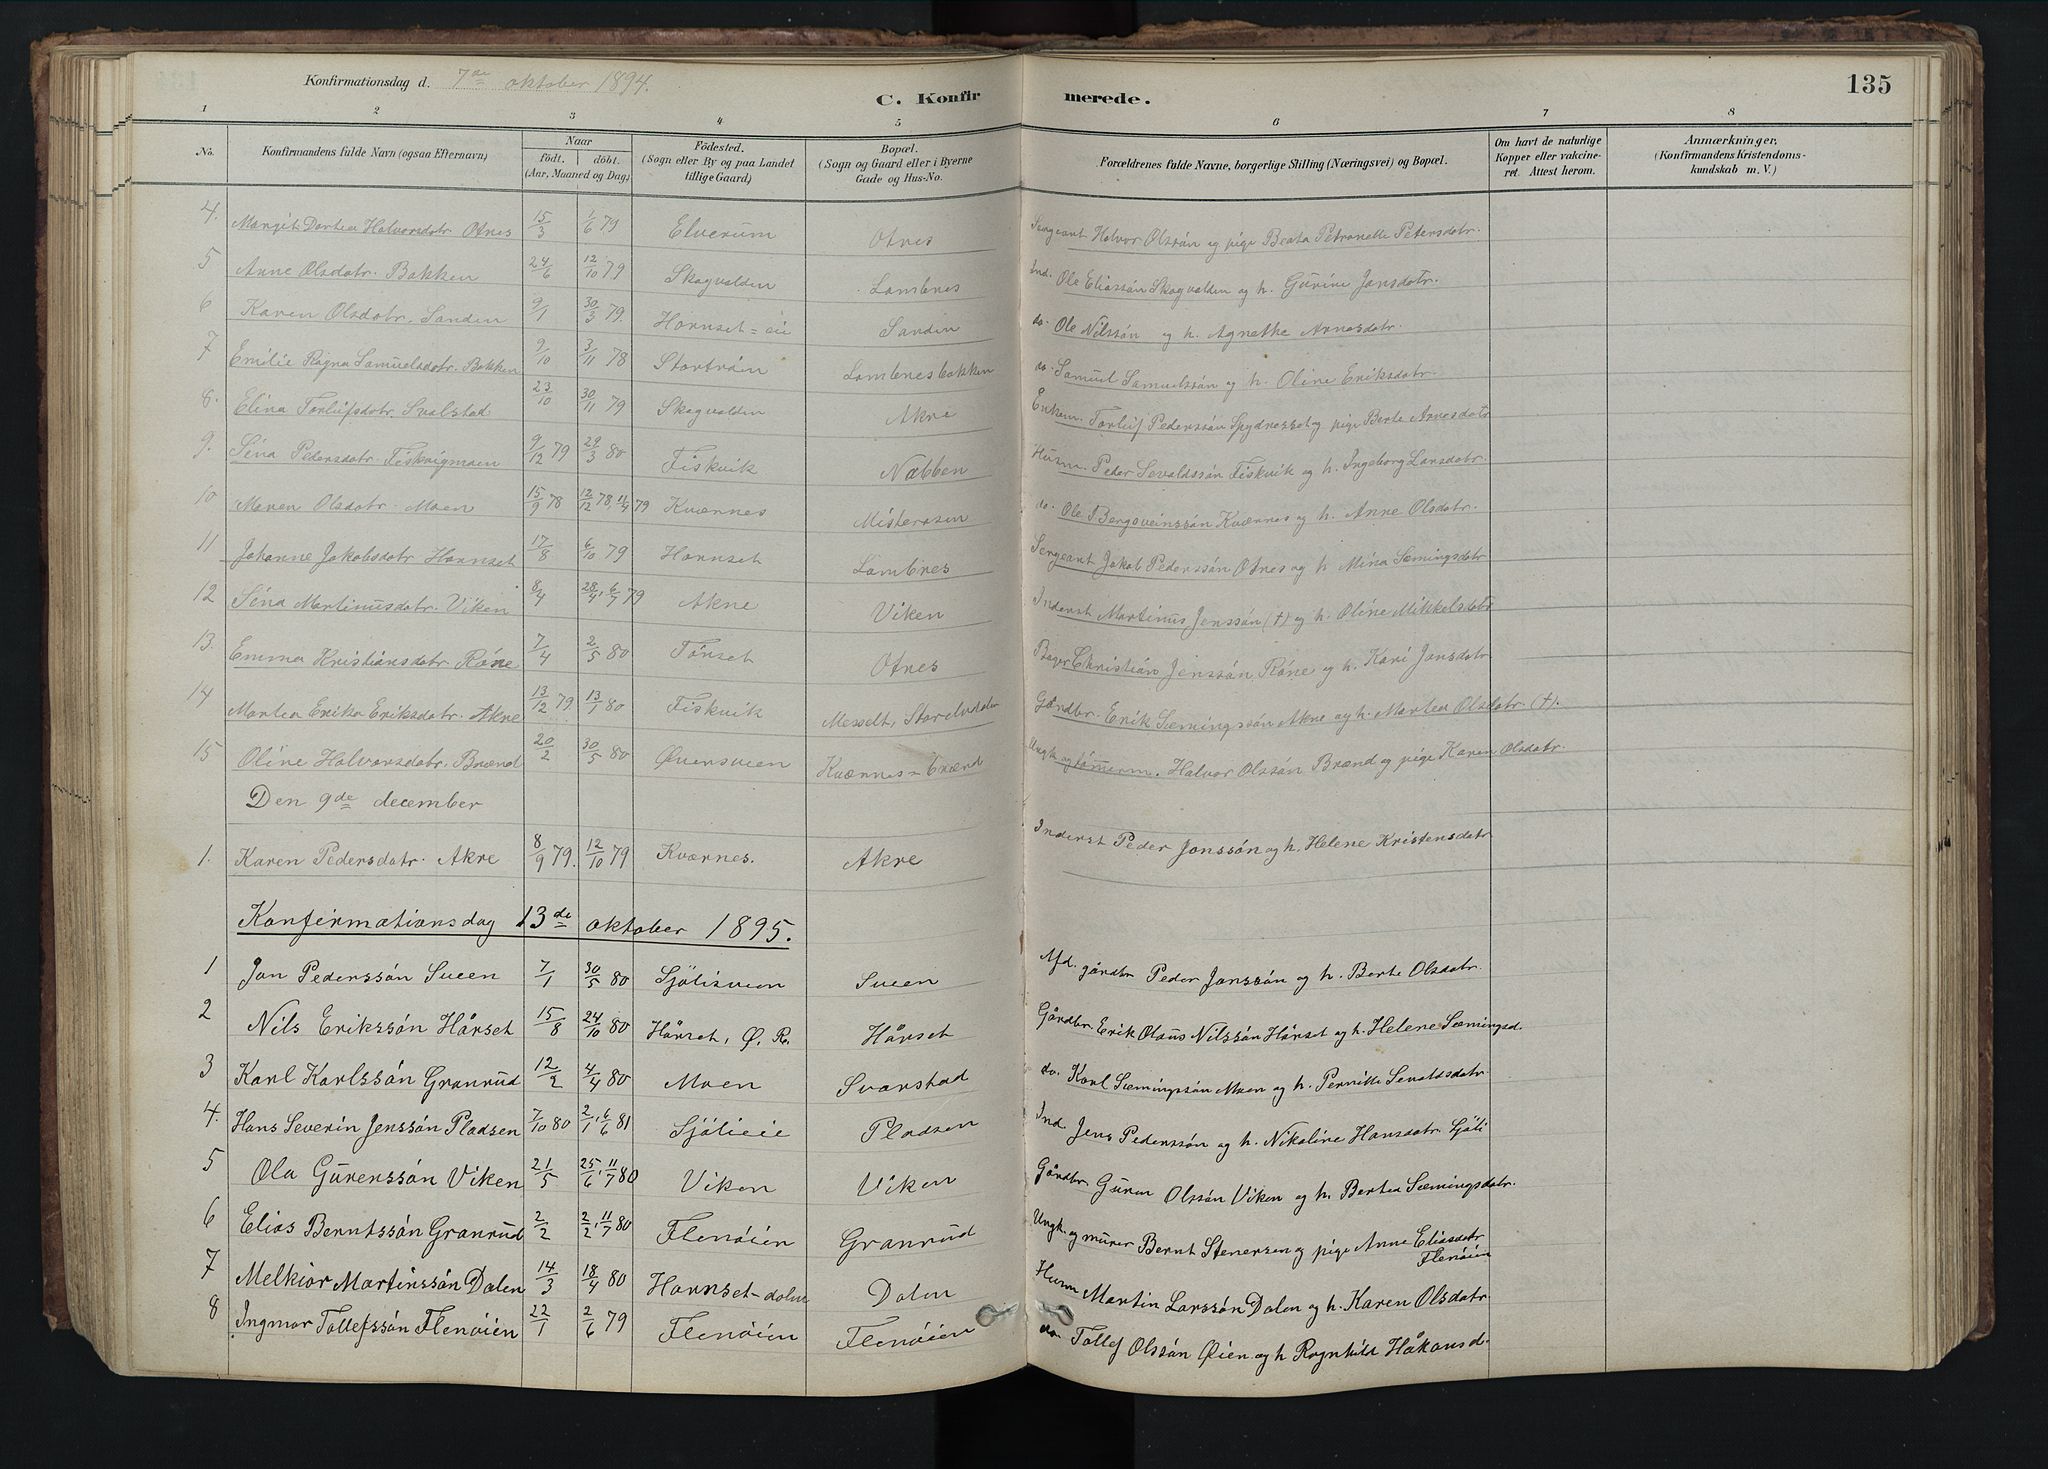 Konfirmationsdag d. 7de oktober 1894.
C. Konfirmerede.
135
1 2 3 4 5 6 7 8
No. Konfirmandens fulde Navn (ogsaa Efternavn) Naar født. døbt. (Aar, Maaned og Dag) Födested. (Sogn eller By og paa Landet tillige Gaard) Bopæl. (Sogn og Gaard eller i Byerne Gade og Hus-No. Forældrenes fulde Navne, borgerlige Stilling (Næringsvei) og Bopæl. Om havt de naturlige Kopper eller vakcineret. Attest herom. Anmærkninger, (Konfirmandens Kristendomskundskab m. V.)
4. Margit Dortea Halvorsdatr Otnes 15/3 1/6 79 Elverum Otnes Sergeant Halvor Olssön og pige Beata Petronelle Petersdatr.
5 Anne Olsdatr. Bakken 24/6 12/10 79 Skogvolden Lombnes Ind. Ole Eliassön Skogvolden og h. Gurine Jonsdatr.
6 Karen Olsdatr. Sanden 9/1 30/3 79. Hornset=eie Sanden do. Ole Nilssön og h. Agnethe Arnesdatr.
7 Emilie Ragna Samuelsdatr. Bakken 9/10 3/11 78 Stortröen Lombnesbakken do. Samuel Samuelssön og h. Oline Eriksdatr.
8. Elina Torlufsdatr. Svalstad 23/10 30/11 79 Skogvolden Akre Enkem. Torluf Pederssön Spydnesset og pige Berte Arnesdatr
9. Sina Pedersdatr. Fiskvigmoen 9/12 79 29/3 80 Fiskvik Næbben Husm. Peder Sevaldssön Fiskvik og h. Ingeborg Larsdatr.
10 Maren Olsdatr. Moen 15/9 78 12/12 78, 11/4 79 Kværnes Misterosen do. Ole Bergsveinssön Kværnes og h. Anne Olsdatr.
11 Johanne Jakobsdatr Hornset 17/8 6/10 79 Hornset Lombnes Sergeant Jakob Pederssön Otnes og h Mina Sæmingsdatr
12 Sina Martinusdatr. Viken 8/4 28/4, 6/7 79 Akre Viken Inderst Martinus Jenssön (†) og h. Oline Mikkelsdatr
13. Emma Kristiansdatr. Röne 7/4 2/5 80 Tönset Otnes Bager Christian Jenssön Röne og h. Kari Jonsdatr
14 Martea Erika Eriksdatr. Akre 13/12 79. 13/1 80 Fiskvik Messelt, Storelvdalen Gårdbr. Erik Sæmingssön Akre og h. Martea Olsdatr. (†).
15 Oline Halvorsdatr. Brænd 20/2 30/5 80 Øversveen Kværnes=brænd Ungk. og tömrerm. Halvor Olssön Brænd og pige Karen Olsdatr.
Den 9de december
1. Karen Pedersdatr. Akre 8/9 79. 12/10 79 Kværnes. Akre Inderst Peder Jonssön og h. Helene Kristensdatr
Konfirmationsdag 13de oktober 1895.
1 Jon Pederssön Sveen 7/1 30/5 80 Sjölisveen Sveen Afd. gårdbr Peder Jonssön og h. Berte Olsdatr.
2 Nils Erikssön Hårset 15/8 24/10 80 Hårset, Ø. R. Hårset Gårdbr. Erik Olaus Nilssön Hårset og h. Helene Sæmingsd.
3 Karl Karlssön Granrud 12/2 4/4 80 Moen Svarstad do. Karl Sæmingssön Moen og h. Pernille Sevaldsdatr.
4. Hans Severin Jenssön Pladsen 7/10 80 2/1, 6/6 81 Sjölieie Pladsen Ind. Jens Pederssön og h. Nikoline Hansdatr. Sjöli
5 Ola Gurenssön Viken 21/5 25/6, 11/7 80 Viken Viken Gårdbr Guren Olssön Viken og h. Bertea Sæmingsdatr.
6 Elias Berntssön Granrud 2/2 2/2, 11/7 80 Flenöien Granrud Ungk. og murer Bernt Stenersen og pige Anne Eliasdatr Flenöien
7 Melkior Martinssön Dalen 14/3 18/4 80 Hornset-dalen Dalen Husm Martin Larssön Dalen og h. Karen Olsdatr
8 Ingmar Tollefssön Flenöien 22/1 2/6 79 Flenöien Flenöien do. Tollef Olssön Øien og h Ragnhild Håkonsd.